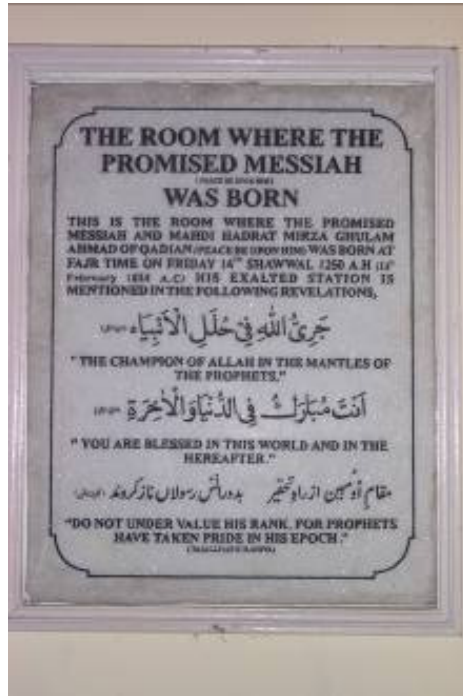 THE ROOM WHERE THE
PROMISED MESSIAH
(PEACE BE UPON HIM)
WAS BORN
THIS IS THE ROOM WHERE THE PROMISED
MESSIAH AND MAHDI HADRAT MIRZA GHULAM
AHMAD OF QADIAN (PEACE BE UPON HIM) WAS BORN AT
FAJR TIME ON FRIDAY 14TH SHAWWAL 1250 A.H (
February A.C) HIS EXALTED STATION IS
MENTIONED IN THE FOLLOWING REVELATIONS,
جَرِیُّ اللّٰهِ فِیْ حُلَلِ الْاَنْبِیَاء
"THE CHAMPION OF ALLAH IN THE MANTLES OF
THE PROPHETS."
اَنْتَ مُبَارَكٌ فِی الدُّنْیَا وَالْاٰخِرَةِ
"YOU ARE BLESSED IN THIS WORLD AND IN THE
HEREAFTER."
مقامِ اُو مبین از راہِ تحقیر بدورانش رسولاں ناز کردند
"DO NOT UNDER VALUE HIS RANK, FOR PROPHETS
HAVE TAKEN PRIDE IN HIS EPOCH."